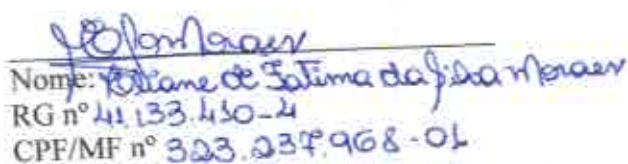 Nome: Eliane de Fatima da Silva Moraes
RG nº 41.133.410-4
CPF/MF nº 323.237.968-01